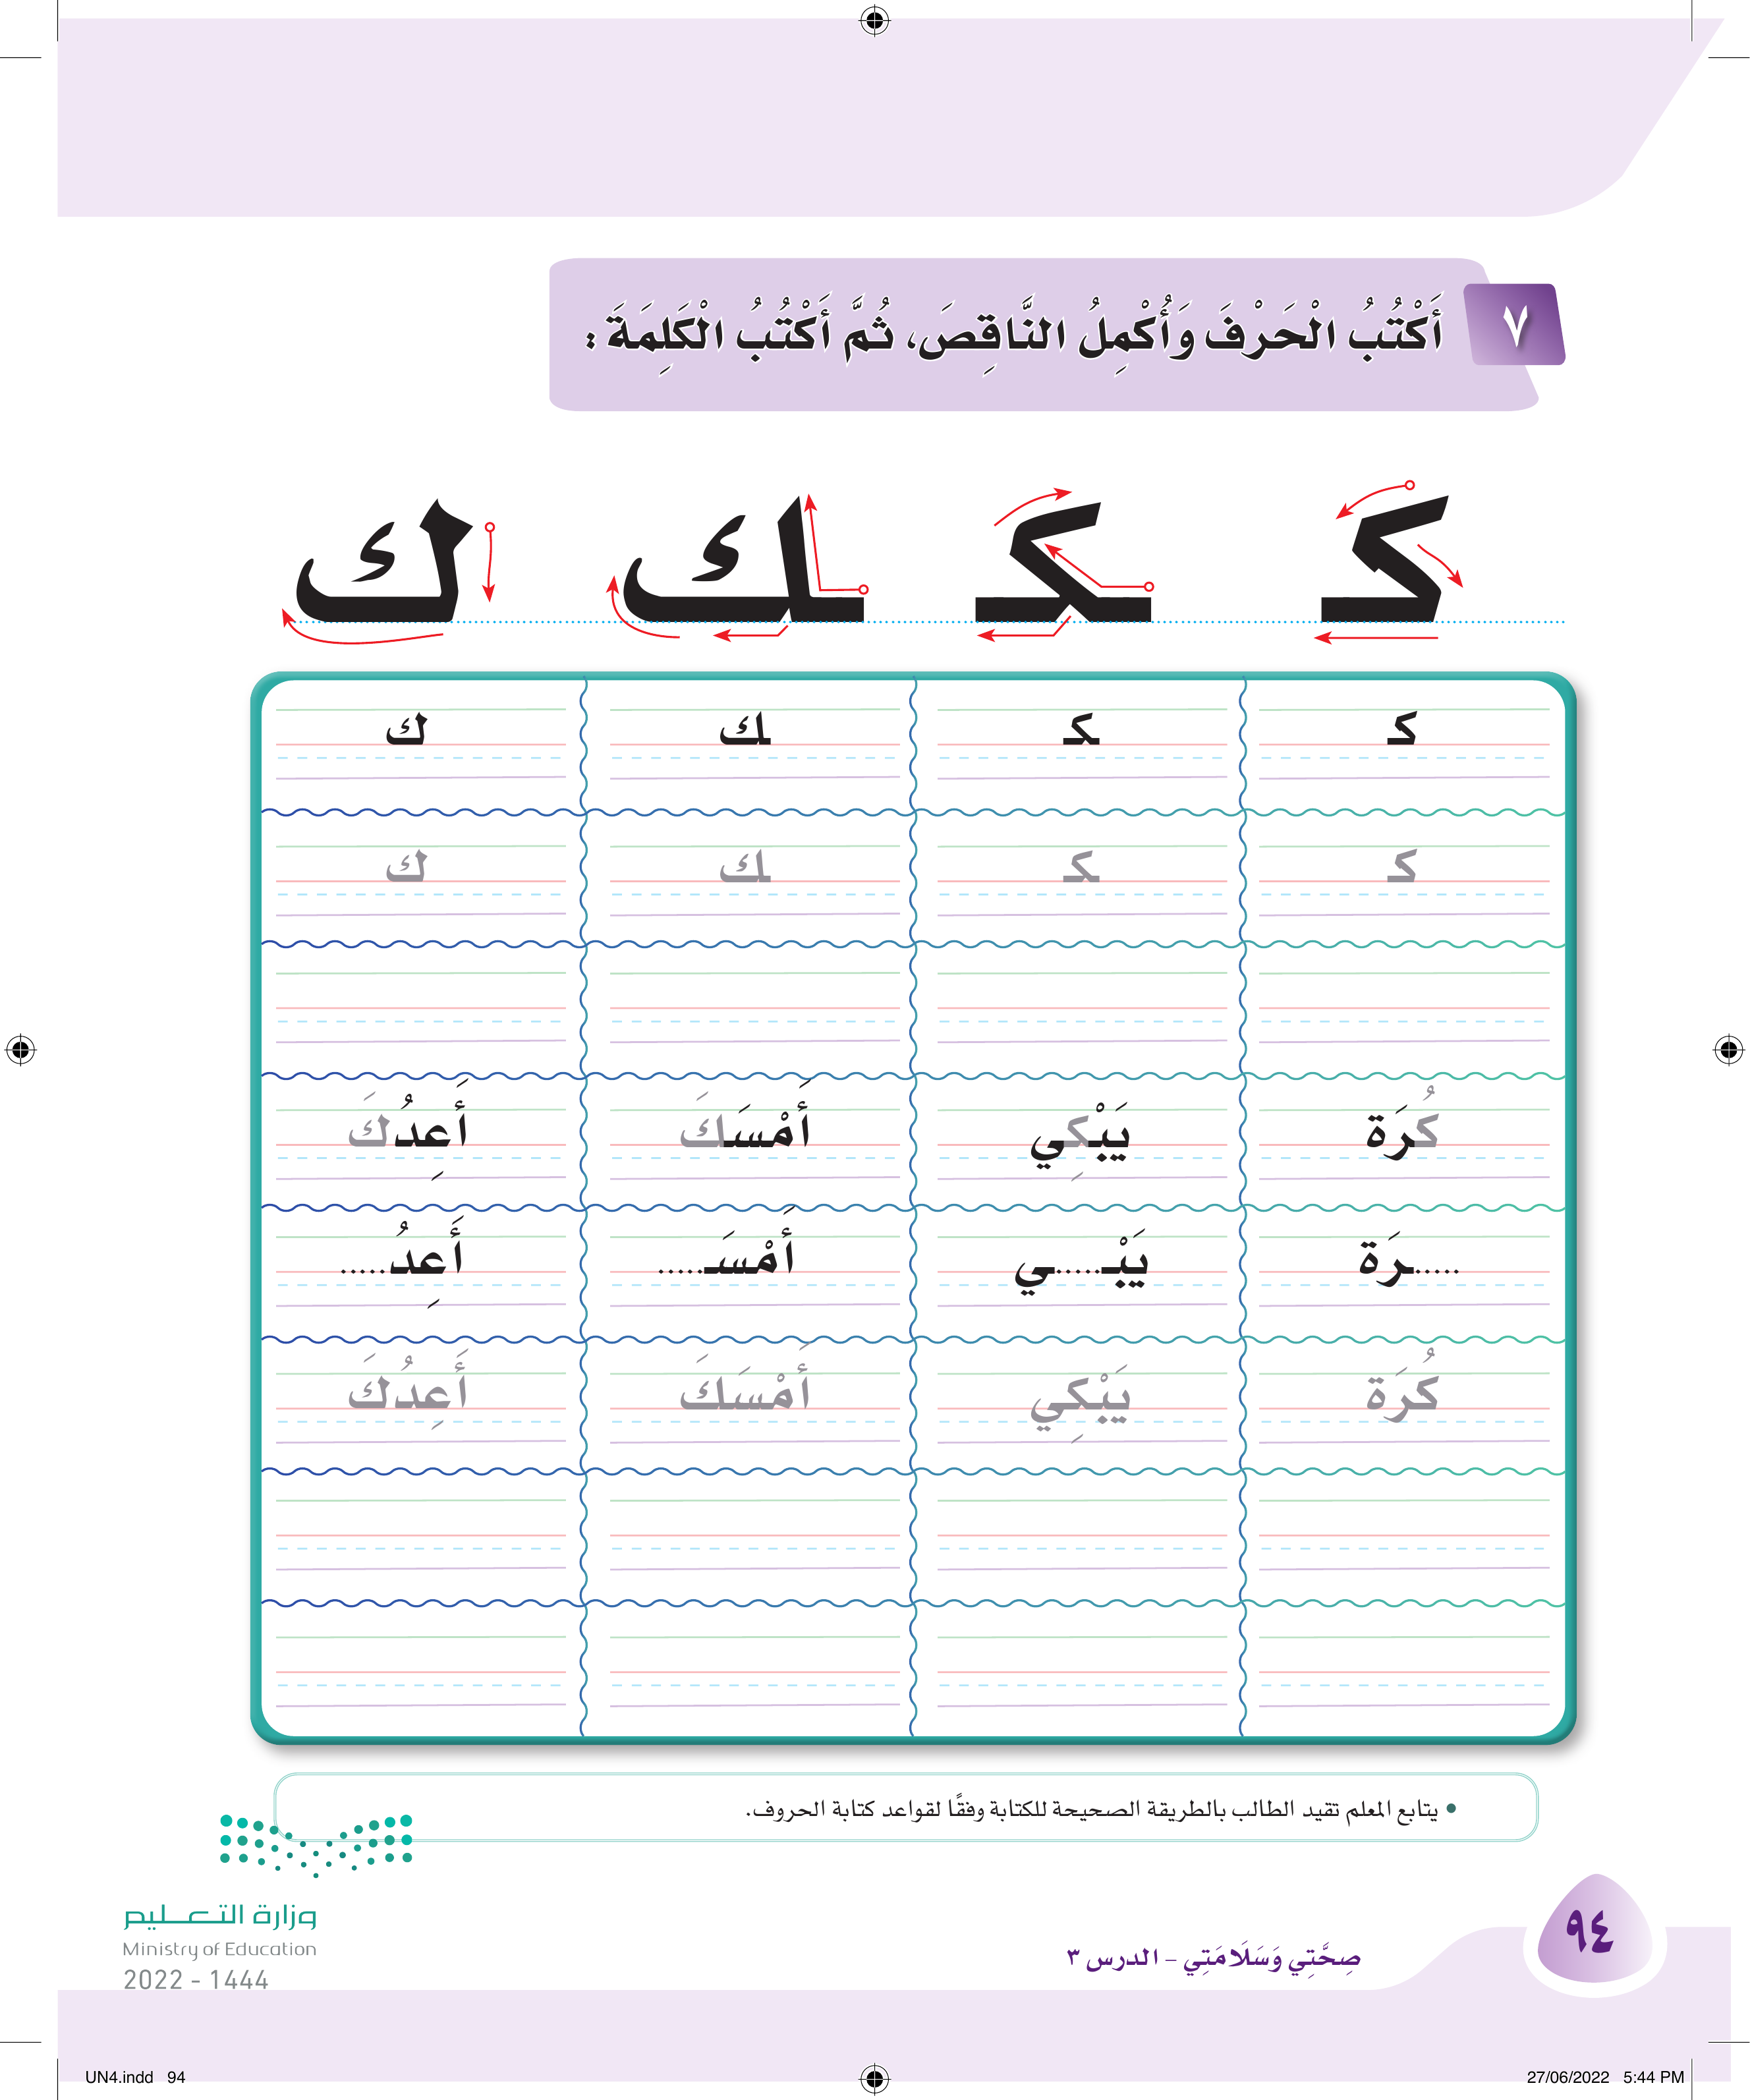 ٧
أَكْتُبُ الْحَرْفَ وَأُكْمِلُ النَّاقِصَ، ثُمَّ أَكْتُبُ الْكَلِمَةَ :
كـ ـكـ ـك ك
كـ ـكـ ـك ك
كـ ـكـ ـك ك
كُرَة يَبْكِي أَمْسَكَ أَعِدُكَ
.....ـرَة يَبْـ.....ـي أَمْسَـ..... أَعِدُ.....
كُرَة يَبْكِي أَمْسَكَ أَعِدُكَ
• يتابع المعلم تقيد الطالب بالطريقة الصحيحة للكتابة وفقًا لقواعد كتابة الحروف.
وزارة التعـــليم
Ministry of Education
2022 - 1444
صِحَّتِي وَسَلَامَتِي – الدرس ٣
٩٤
UN4.indd 94
27/06/2022 5:44 PM